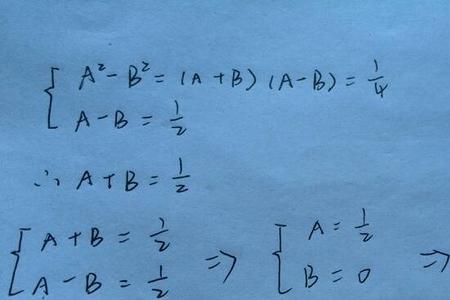 { A² - B² = (A + B) (A - B) = 1/4
A - B = 1/2
∴ A + B = 1/2
{ A + B = 1/2 ⇒ { A = 1/2
A - B = 1/2 B = 0 ⇒